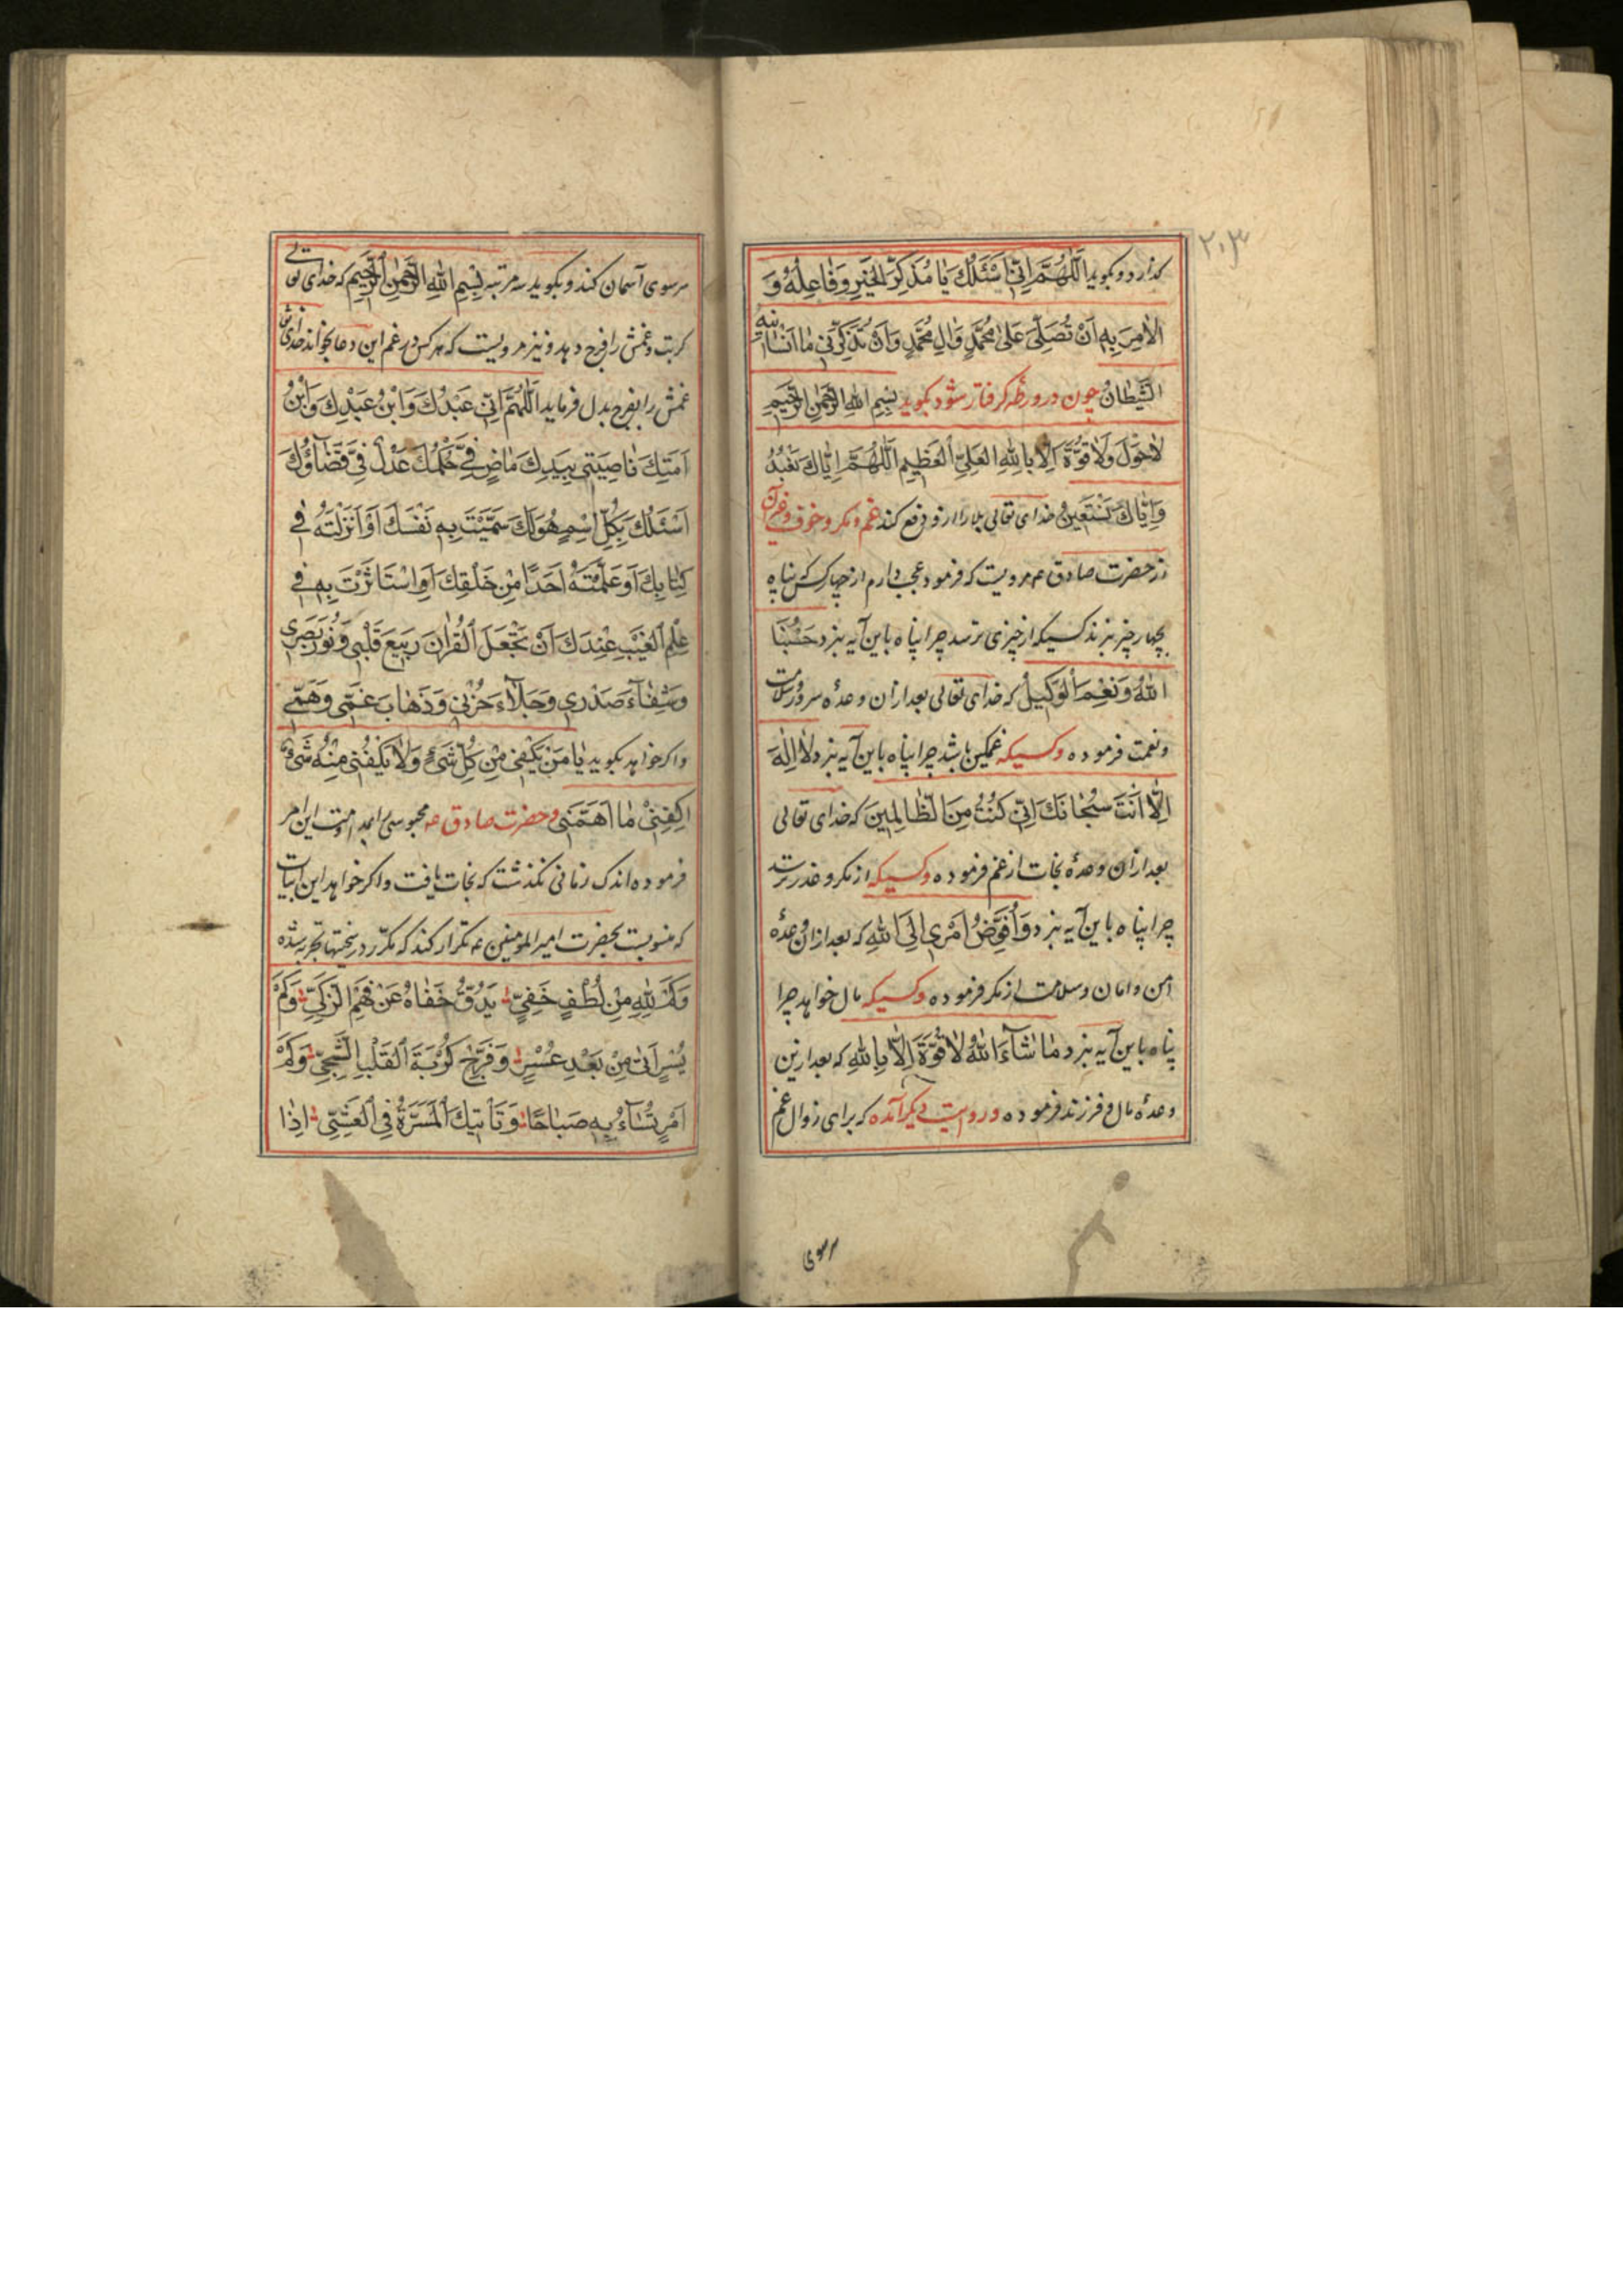 ۲۰۳
گذارد و بگوید اَللّٰهُمَّ اِنّی اَسْئَلُكَ یَا مُذَكِّرَ الْخَیْرِ وَفَاعِلَهُ وَ
الْاٰمِرَ بِهِ اَنْ تُصَلِّیَ عَلیٰ مُحَمَّدٍ وَاٰلِ مُحَمَّدٍ وَاَنْ تُذَكِّرَنی مَا اَنْسَانیهِ
الشَّیْطَانُ چون در ورطه گرفتار شود بگوید بِسْمِ اللهِ الرَّحْمٰنِ الرَّحیمِ
لَاحَوْلَ وَلَاقُوَّةَ اِلَّا بِاللهِ الْعَلِیِّ الْعَظیمِ اَللّٰهُمَّ اِیَّاكَ نَعْبُدُ
وَاِیَّاكَ نَسْتَعینُ خدای تعالی بلا را ازو دفع کند غم و مکر و خوف و غیر آن
از حضرت صادق ع مرویست که فرمود عجب دارم از چهار کس که پناه
بچهار چیز نبرند کسیکه از چیزی ترسد چرا پناه باین آیه نبرد حَسْبُنَا
اللهُ وَنِعْمَ الْوَكیلُ که خدای تعالی بعد ازان وعدهٔ سرور و سلامت
و نعمت فرموده و کسیکه غمگین باشد چرا پناه باین آیه نبرد لَا اِلٰهَ
اِلَّا اَنْتَ سُبْحَانَكَ اِنّی كُنْتُ مِنَ الظَّالِمینَ که خدای تعالی
بعد ازان وعدهٔ نجات از غم فرموده و کسیکه از مکر و غدر ترسد
چرا پناه باین آیه نبرد وَاُفَوِّضُ اَمْری اِلَی اللهِ که بعد ازان وعدهٔ
امن و امان و سلامت از مکر فرموده و کسیکه مال خواهد چرا
پناه باین آیه نبرد مَا شَآءَ اللهُ لَا قُوَّةَ اِلَّا بِاللهِ که بعد ازین
وعدهٔ مال و فرزند فرموده و روایت دیگر آمده که برای زوال غم
سر سوی
سر سوی آسمان کند و بگوید سه مرتبه بِسْمِ اللهِ الرَّحْمٰنِ الرَّحیمِ که خدای تعالی
کربت و غمش را فرح دهد و نیز مرویست که هرکس در غم این دعا بخواند خدای تعالی
غمش را بفرح بدل فرماید اَللّٰهُمَّ اِنّی عَبْدُكَ وَابْنُ عَبْدِكَ وَابْنُ
اَمَتِكَ نَاصِیَتی بِیَدِكَ مَاضٍ فِیَّ حُكْمُكَ عَدْلٌ فِیَّ قَضَآؤُكَ
اَسْئَلُكَ بِكُلِّ اسْمٍ هُوَلَكَ سَمَّیْتَ بِهِ نَفْسَكَ اَوْ اَنْزَلْتَهُ فی
كِتَابِكَ اَوْ عَلَّمْتَهُ اَحَدًا مِنْ خَلْقِكَ اَوِاسْتَاثَرْتَ بِهِ فی
عِلْمِ الْغَیْبِ عِنْدَكَ اَنْ تَجْعَلَ الْقُرْاٰنَ رَبیعَ قَلْبی وَنُورَ بَصَری
وَشِفَآءَ صَدْری وَجَلَآءَ حُزْنی وَذَهَابَ غَمّی وَهَمّی
و اگر خواهد بگوید یَا مَنْ یَكْفی مِنْ كُلِّ شَیْءٍ وَلَا یَكْفی مِنْهُ شَیْءٌ
اِكْفِنی مَا اَهَمَّنی و حضرت صادق ع محبوسی را بمداومت این امر
فرموده اندک زمانی نگذشت که نجات یافت و اگر خواهد این ابیات
که منسوبست بحضرت امیر المومنین ع تکرار کند که مکرّر در سختیها تجربه شده
وَكَمْ لِلّٰهِ مِنْ لُطْفٍ خَفِیٍّ یَدُقُّ خَفَاهُ عَنْ فَهْمِ الزَّكِیِّ وَكَمْ
یُسْرٍ اَتیٰ مِنْ بَعْدِ عُسْرٍ وَفَرَّجَ كُرْبَةَ الْقَلْبِ الشَّجِیِّ وَكَمْ
اَمْرٍ تُسَآءُ بِهِ صَبَاحًا وَتَأْتیكَ الْمَسَرَّةُ فِی الْعَشِیِّ اِذَا